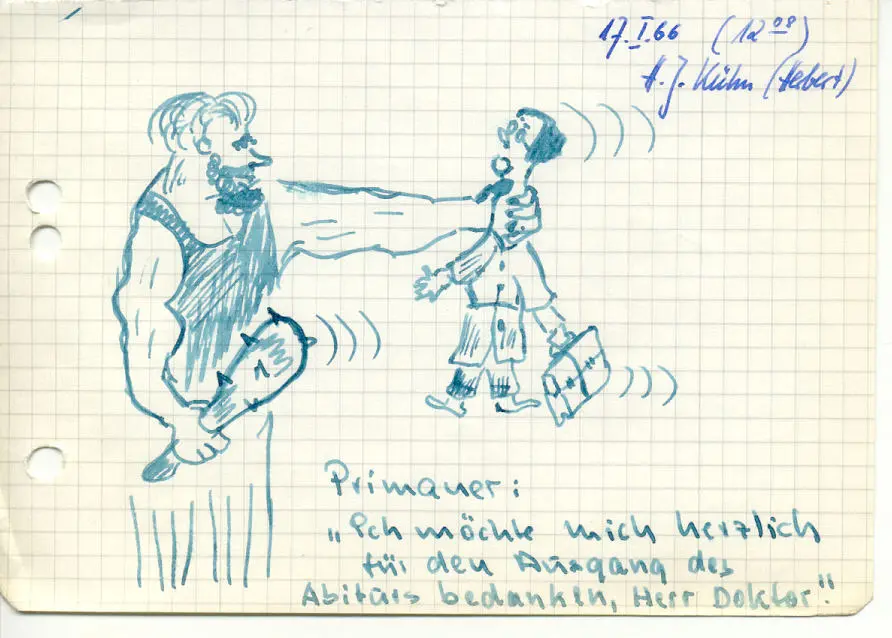 17.I.66 (12 08)
H. J. Kühn (Hebert)
Primaner:
„Ich möchte mich herzlich
für den Ausgang des
Abiturs bedanken, Herr Doktor".